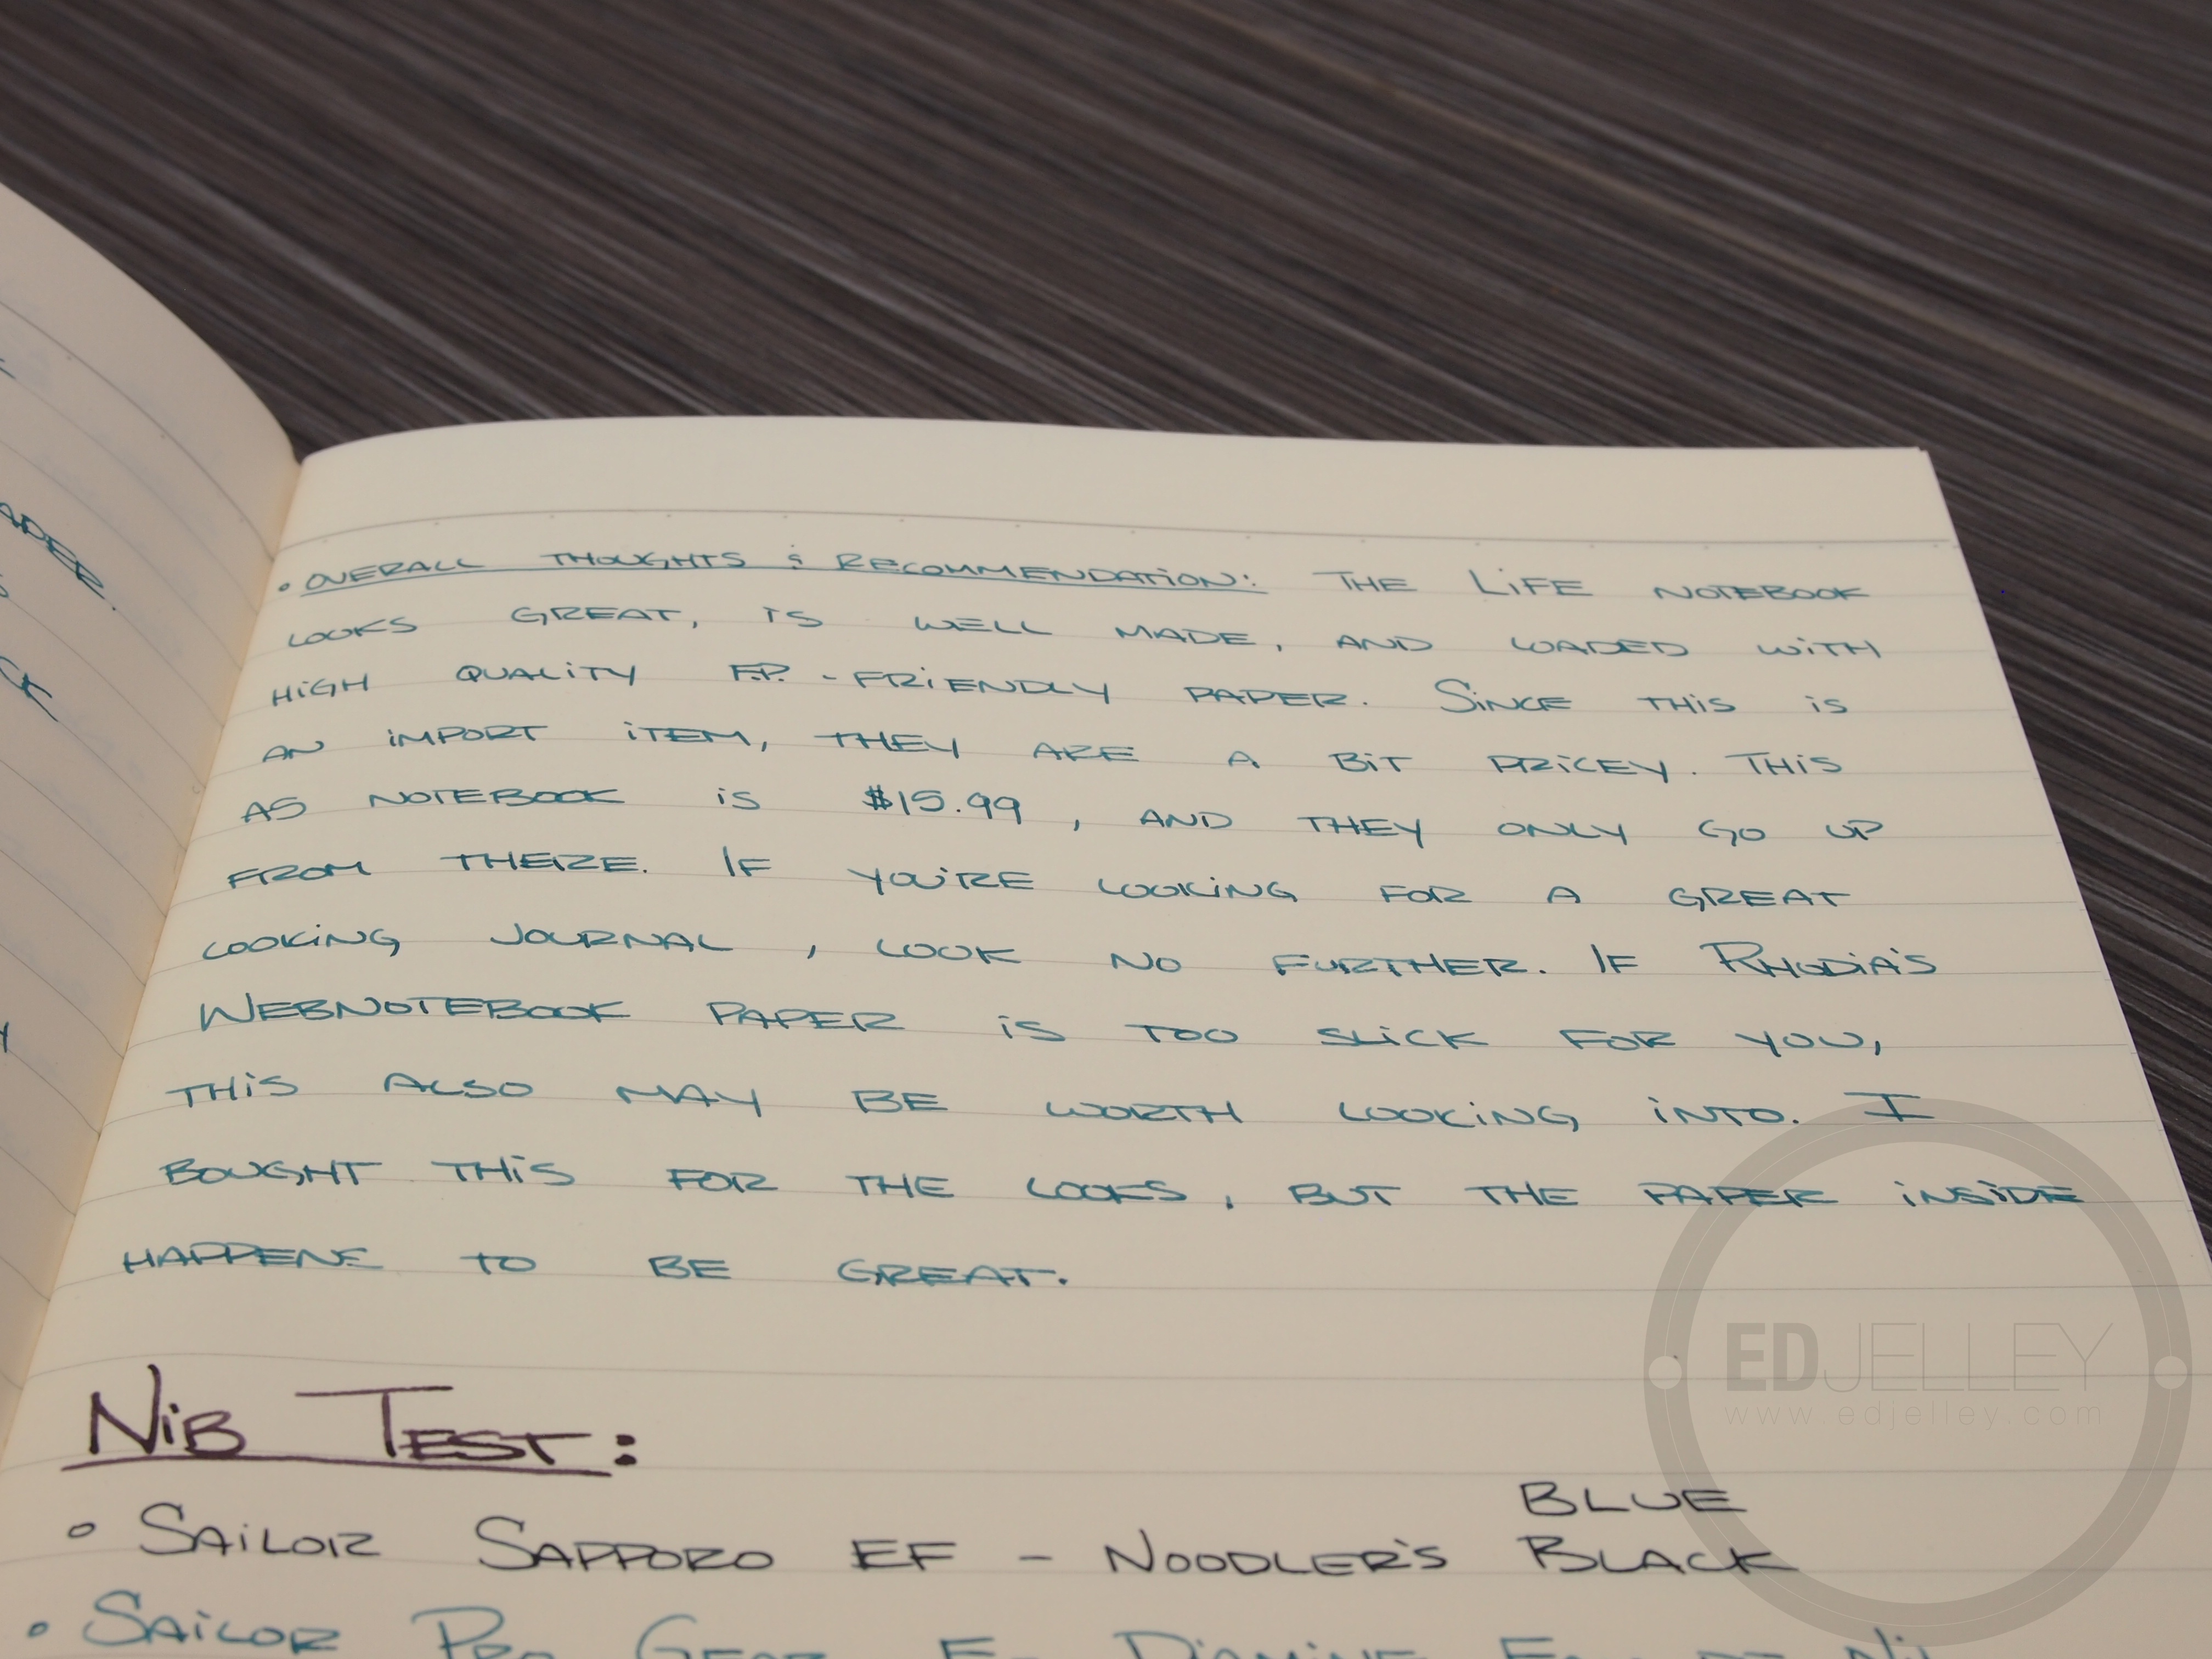 • OVERALL THOUGHTS & RECOMMENDATION: THE LIFE NOTEBOOK
LOOKS GREAT, IS WELL MADE, AND LOADED WITH
HIGH QUALITY F.P. - FRIENDLY PAPER. SINCE THIS IS
AN IMPORT ITEM, THEY ARE A BIT PRICEY. THIS
A5 NOTEBOOK IS $15.99, AND THEY ONLY GO UP
FROM THERE. IF YOU'RE LOOKING FOR A GREAT
LOOKING JOURNAL, LOOK NO FURTHER. IF RHODIA'S
WEBNOTEBOOK PAPER IS TOO SLICK FOR YOU,
THIS ALSO MAY BE WORTH LOOKING INTO. I
BOUGHT THIS FOR THE LOOKS, BUT THE PAPER INSIDE
HAPPENS TO BE GREAT.
NIB TEST:
BLUE
• SAILOR SAPPORO EF - NOODLER'S BLACK
• SAILOR PRO GEAR F - DIAMINE EAU DE NIL
EDJELLEY
www.edjelley.com